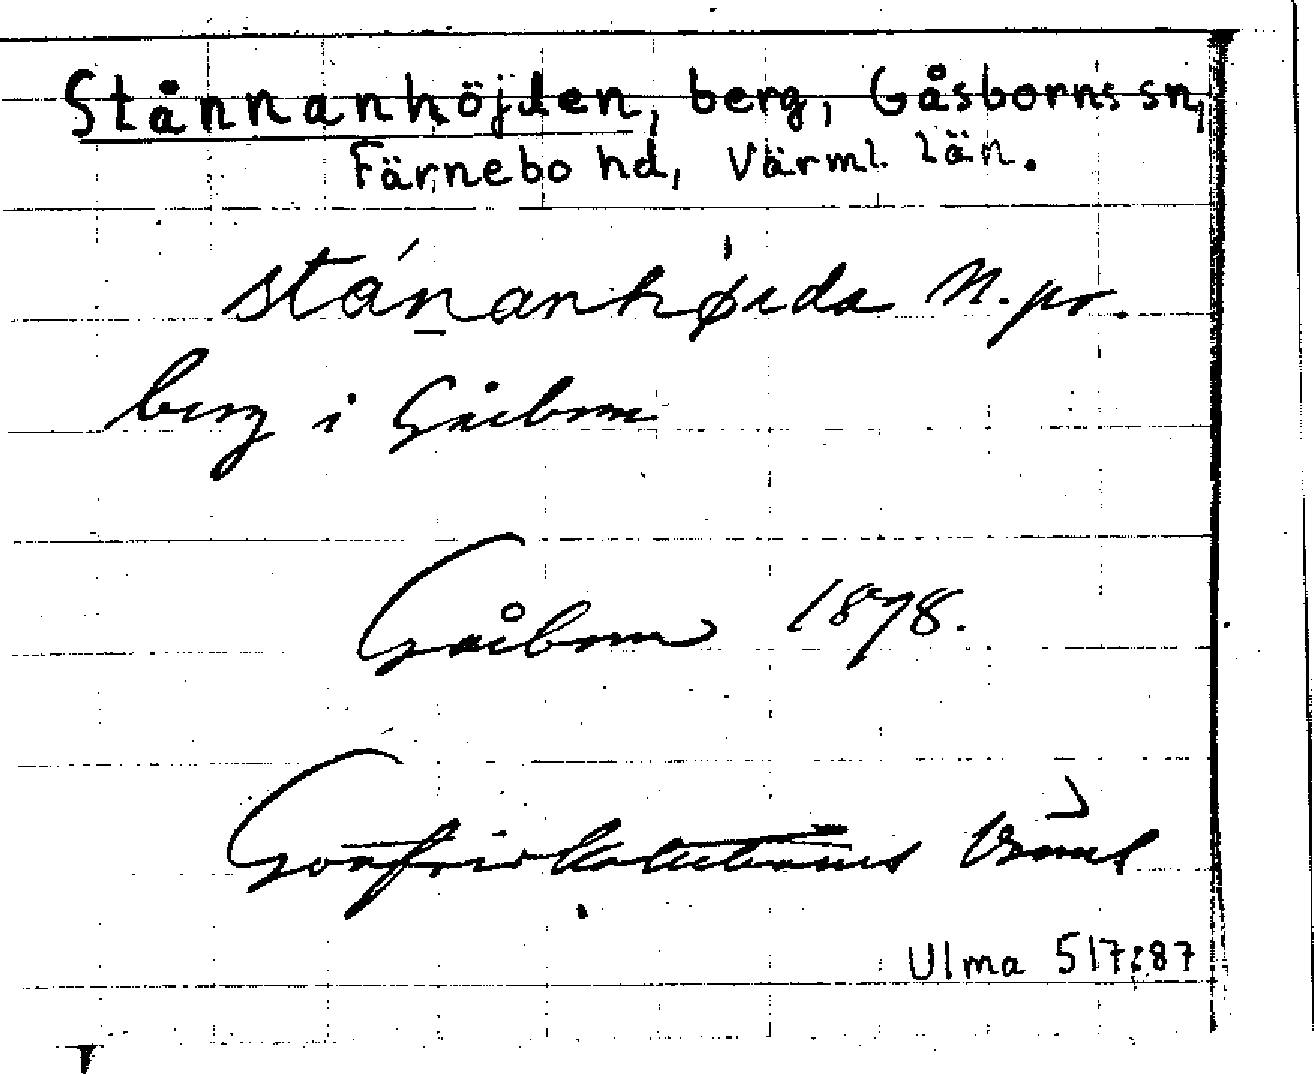 Stånnanhöjden, berg, Gåsborns sn,
Färnebo hd, Värml. län.
stánanhøida N. pr.
berg i Gåsborn
Gåsborn 1878.
Ulma 517:87